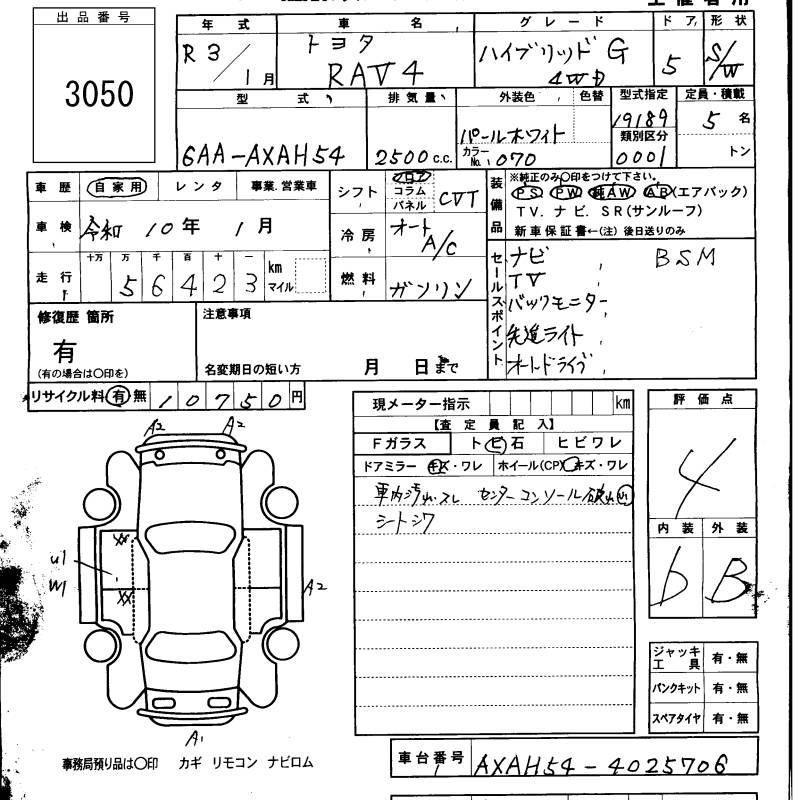 出品番号
3050
年式 車名 グレード ドア 形状
R3/1月 トヨタ RAV4 ハイブリッド G 4WD 5 S/W
型式 排気量 外装色 色替 型式指定 定員・積載
6AA-AXAH54 2500c.c. パールホワイト 19189 5名
カラーNo. 070 類別区分 0001 トン
車歴 自家用 レンタ 事業.営業車
シフト フロア コラム パネル CVT
装備品 ※純正のみ〇印をつけて下さい。
PS PW 純AW AB(エアバック)
TV. ナビ. SR(サンルーフ)
新車保証書←(注) 後日送りのみ
車検 令和 10年 1月
冷房 オート A/C
走行 十万 万 千 百 十 一 km マイル
56423
燃料 ガソリン
セールスポイント
ナビ BSM
TV
バックモニター
先進ライト
オートドライブ
修復歴 箇所
有
(有の場合は〇印を)
注意事項
名変期日の短い方 月 日まで
リサイクル料 有 無 10750円
現メーター指示 km
【査定員記入】
Fガラス トビ石 ヒビワレ
ドアミラー キズ・ワレ ホイール(CP) キズ・ワレ
車内汚れ・スレ センターコンソール破れ小
シートシワ
評価点
4
内装 外装
b B
A2 A2
XX
U1
W1
XX
A2
A1
ジャッキ工具 有・無
パンクキット 有・無
スペアタイヤ 有・無
事務局預り品は〇印 カギ リモコン ナビロム
車台番号 AXAH54-4025706